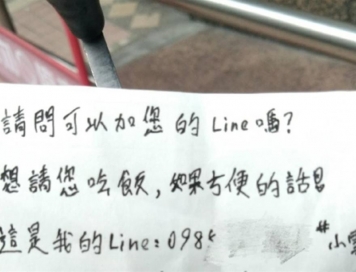 請問可以加您的Line嗎?
想請您吃飯,如果方便的話
這是我的Line:098 "小